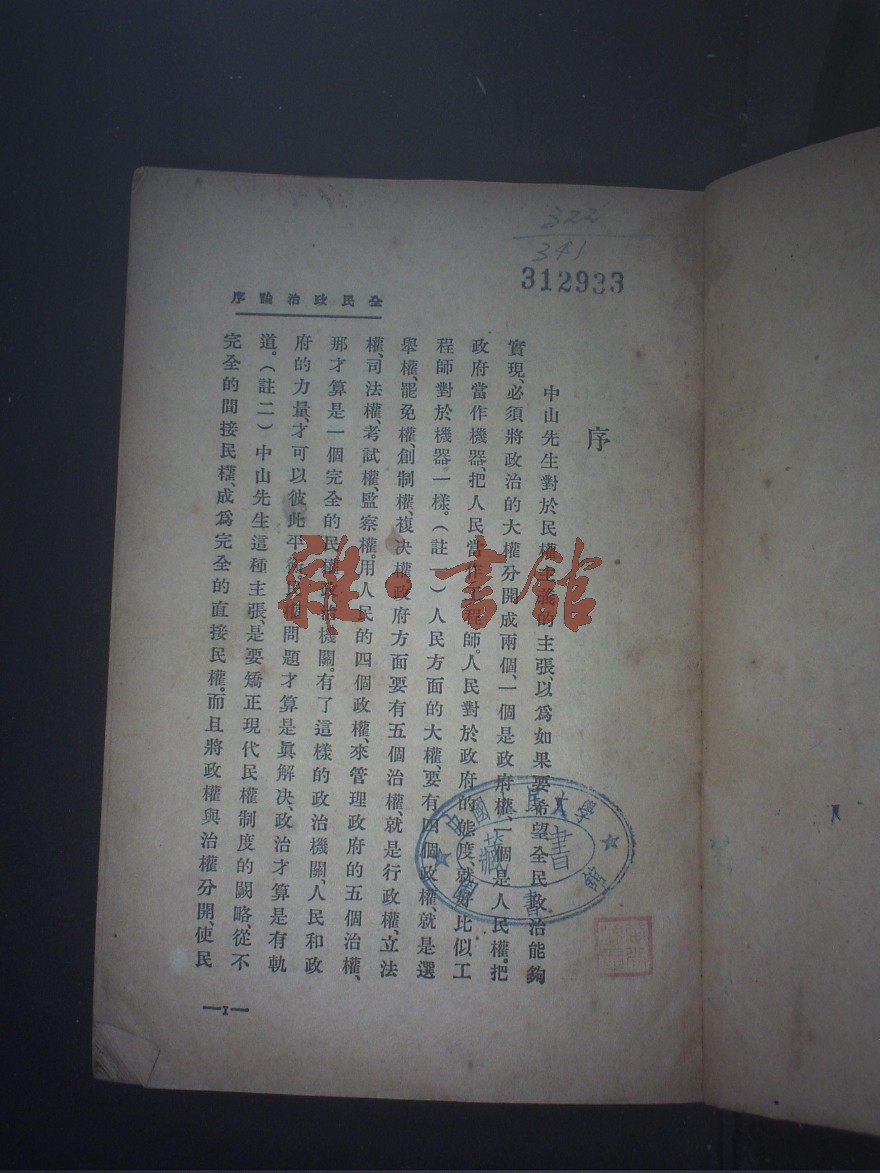 322
341
312933
全民政治論序
序
中山先生對於民權主義的主張、以爲如果要希望全民政治能夠
實現、必須將政治的大權分開成兩個、一個是政府權、一個是人民權。把
政府當作機器、把人民當作工程師。人民對於政府的態度、就好比似工
程師對於機器一樣。（註一）人民方面的大權、要有四個政權、就是選
舉權、罷免權、創制權、複決權政府方面要有五個治權、就是行政權、立法
權、司法權、考試權、監察權。用人民的四個政權、來管理政府的五個治權、
那才算是一個完全的民權政治機關。有了這樣的政治機關、人民和政
府的力量、才可以彼此平衡、民權問題才算是眞解決、政治才算是有軌
道。（註二）中山先生這種主張、是要矯正現代民權制度的闕略、從不
完全的間接民權、成爲完全的直接民權。而且將政權與治權分開、使民
—1—
雜·書館
中國人民大學
藏書
圖書館